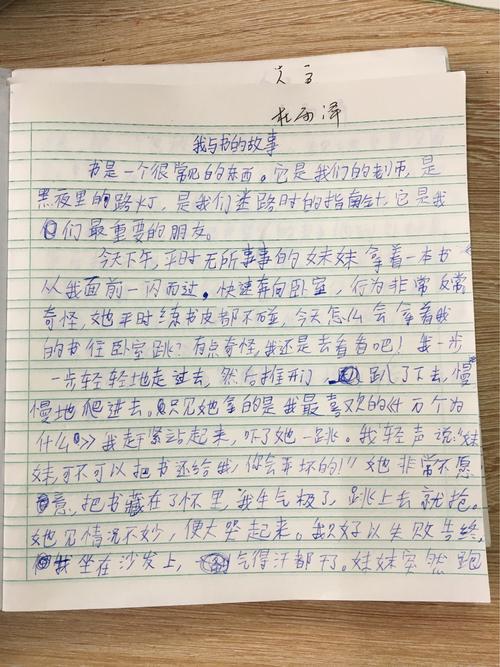 我与书的故事
书是一个很常见的东西。它是我们的老师，是
黑夜里的路灯，是我们迷路时的指南针，它是我
们最重要的朋友。
今天下午，平时无所事事的妹妹拿着一本书
从我面前一闪而过。快速奔向卧室，行为非常反常
奇怪，她平时练书皮都不碰，今天怎么会拿着我
的书往卧室跳？有点奇怪，我还是去看看吧！我一步
一步轻轻地走过去，然后推开门，趴了下去，慢
慢地爬进去。只见她拿的是我最喜欢的《十万个为
什么》我赶紧站起来，吓了她一跳。我轻声说："妹
妹，可不可以把书还给我，你会弄坏的！"她非常不愿
意，把书藏在了怀里，我生气极了，跳上去就抢。
她见情况不妙，便大哭起来。我只好以失败告终，
我坐在沙发上，气得汗都干了。妹妹突然跑